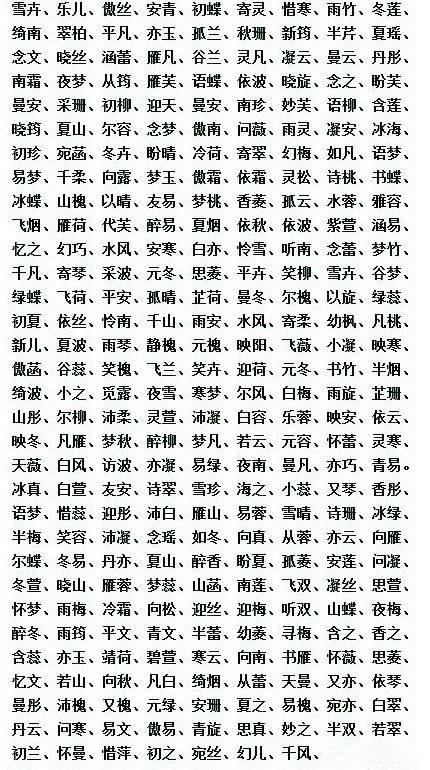 雪卉、乐儿、傲丝、安青、初蝶、寄灵、惜寒、雨竹、冬莲、
绮南、翠柏、平凡、亦玉、孤兰、秋珊、新筠、半芹、夏瑶、
念文、晓丝、涵蕾、雁凡、谷兰、灵凡、凝云、曼云、丹彤、
南霜、夜梦、从筠、雁芙、语蝶、依波、晓旋、念之、盼芙、
曼安、采珊、初柳、迎天、曼安、南珍、妙芙、语柳、含莲、
晓筠、夏山、尔容、念梦、傲南、问薇、雨灵、凝安、冰海、
初珍、宛菡、冬卉、盼晴、冷荷、寄翠、幻梅、如凡、语梦、
易梦、千柔、向露、梦玉、傲霜、依霜、灵松、诗桃、书蝶、
冰蝶、山槐、以晴、友易、梦桃、香菱、孤云、水蓉、雅容、
飞烟、雁荷、代芙、醉易、夏烟、依秋、依波、紫萱、涵易、
忆之、幻巧、水风、安寒、白亦、怜雪、听南、念蕾、梦竹、
千凡、寄琴、采波、元冬、思菱、平卉、笑柳、雪卉、谷梦、
绿蝶、飞荷、平安、孤晴、芷荷、曼冬、尔槐、以旋、绿蕊、
初夏、依丝、怜南、千山、雨安、水风、寄柔、幼枫、凡桃、
新儿、夏波、雨琴、静槐、元槐、映阳、飞薇、小凝、映寒、
傲菡、谷蕊、笑槐、飞兰、笑卉、迎荷、元冬、书竹、半烟、
绮波、小之、觅露、夜雪、寒梦、尔风、白梅、雨旋、芷珊、
山彤、尔柳、沛柔、灵萱、沛凝、白容、乐蓉、映安、依云、
映冬、凡雁、梦秋、醉柳、梦凡、若云、元容、怀蕾、灵寒、
天薇、白风、访波、亦凝、易绿、夜南、曼凡、亦巧、青易。
冰真、白萱、友安、诗翠、雪珍、海之、小蕊、又琴、香彤、
语梦、惜蕊、迎彤、沛白、雁山、易蓉、雪晴、诗珊、冰绿、
半梅、笑容、沛凝、念瑶、如冬、向真、从蓉、亦云、向雁、
尔蝶、冬易、丹亦、夏山、醉香、盼夏、孤菱、安莲、问凝、
冬萱、晓山、雁蓉、梦蕊、山菡、南莲、飞双、凝丝、思萱、
怀梦、雨梅、冷霜、向松、迎丝、迎梅、听双、山蝶、夜梅、
醉冬、雨筠、平文、青文、半蕾、幼菱、寻梅、含之、香之、
含蕊、亦玉、靖荷、碧萱、寒云、向南、书雁、怀薇、思菱、
忆文、若山、向秋、凡白、绮烟、从蕾、天曼、又亦、依琴、
曼彤、沛槐、又槐、元绿、安珊、夏之、易槐、宛亦、白翠、
丹云、问寒、易文、傲易、青旋、思真、妙之、半双、若翠、
初兰、怀曼、惜萍、初之、宛丝、幻儿、千风、